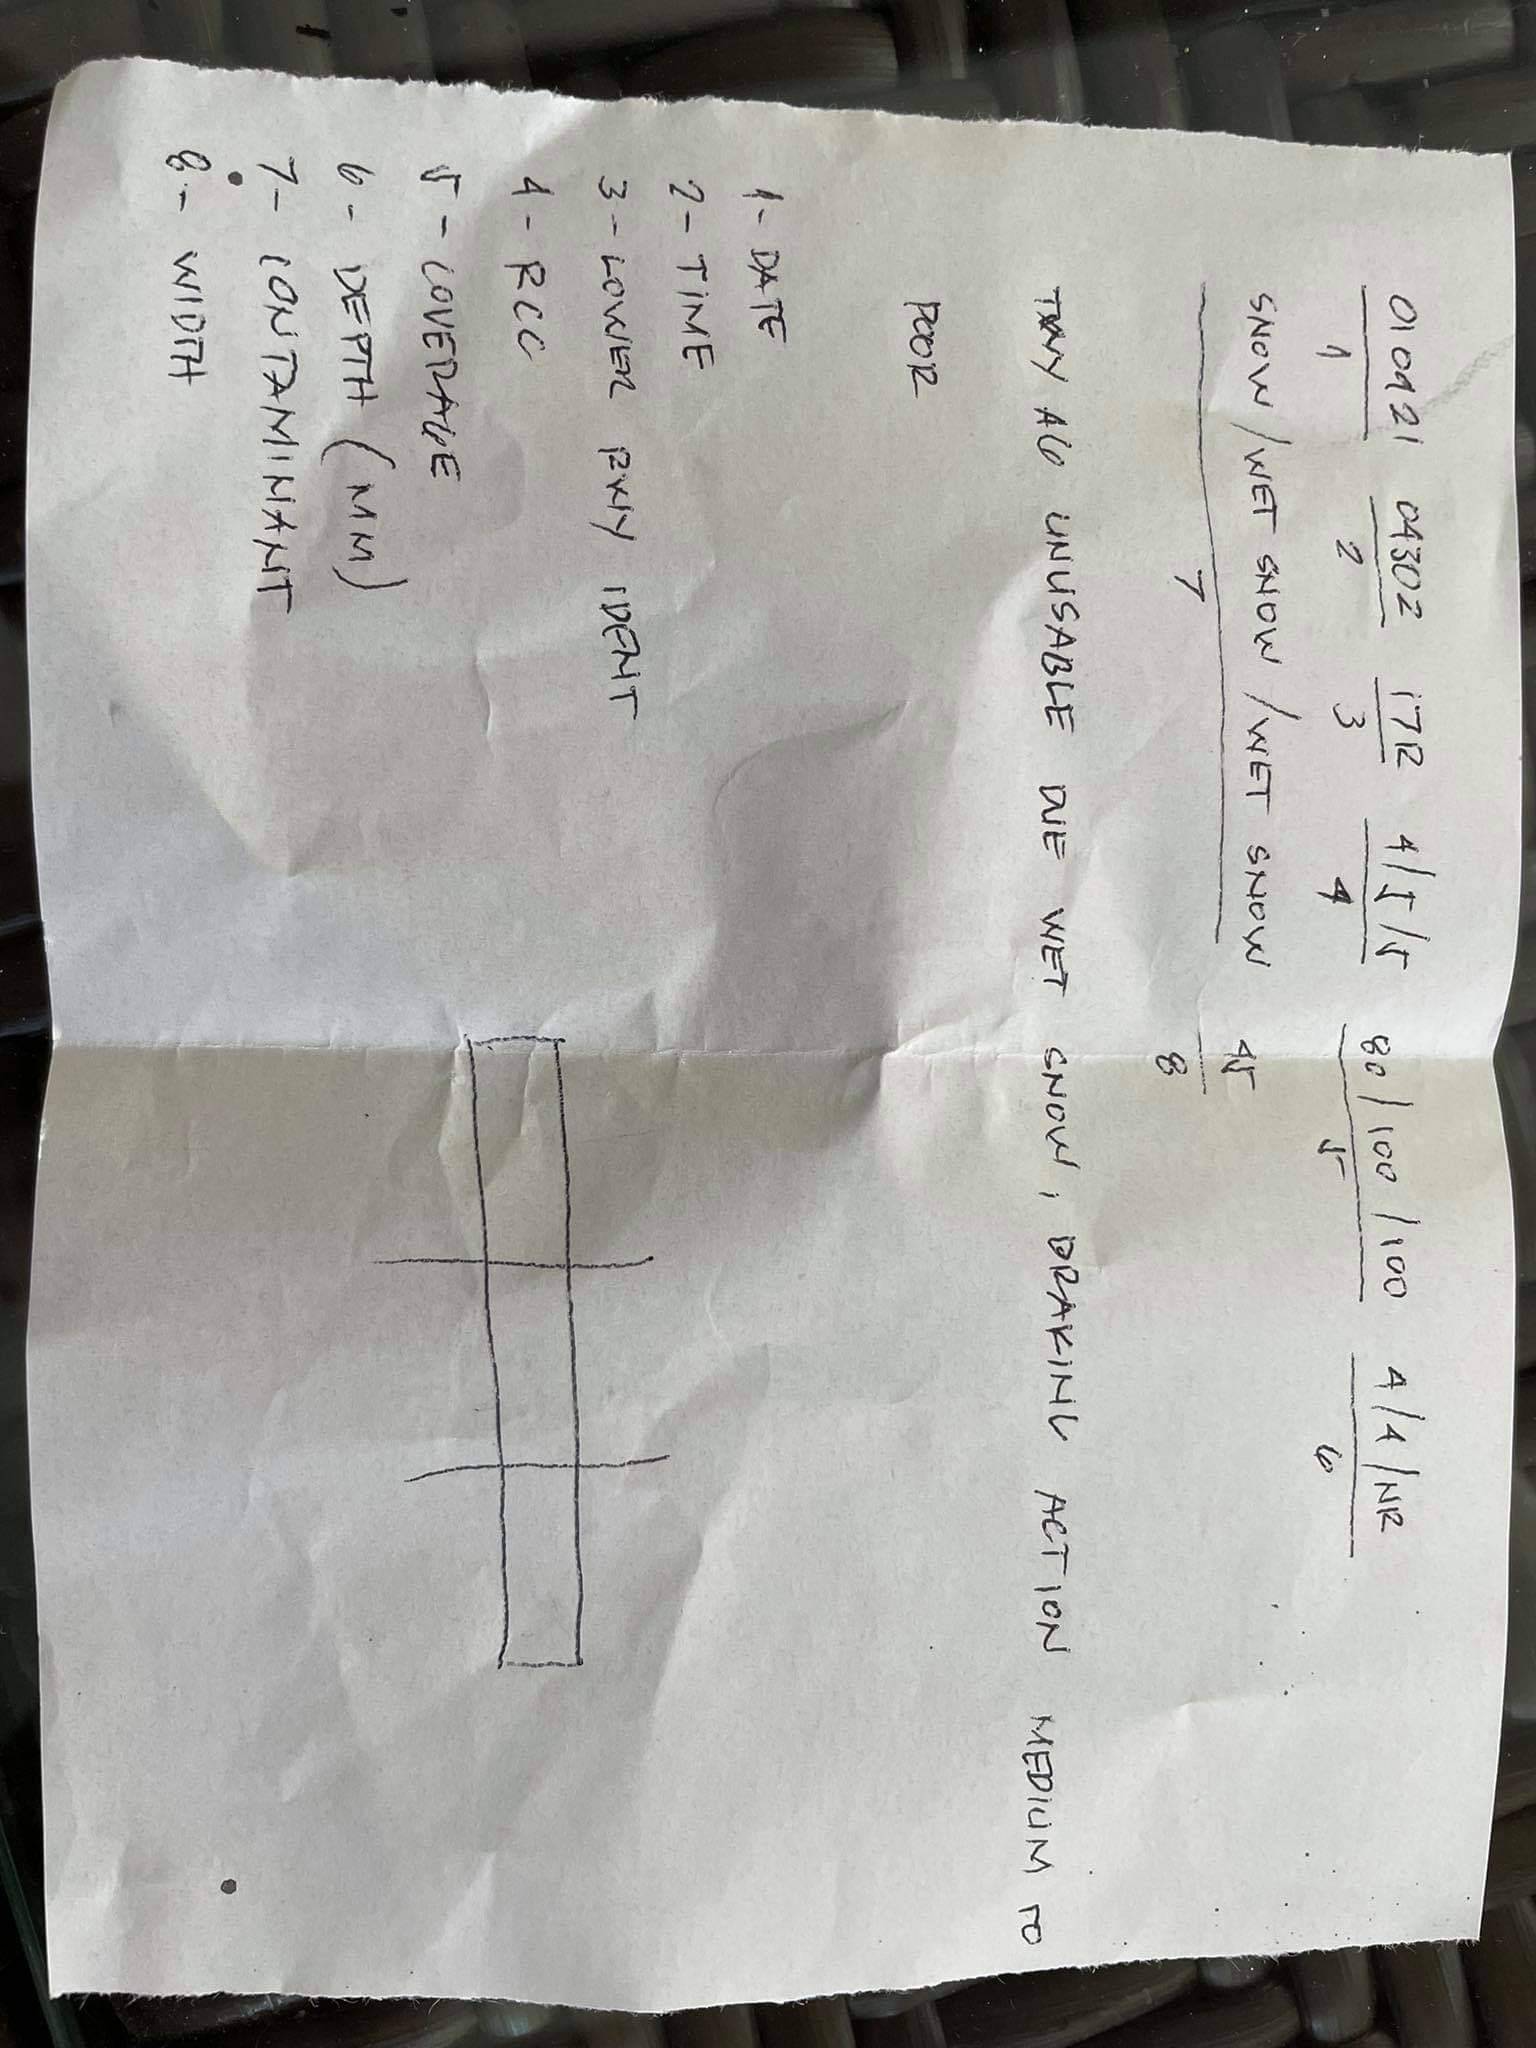 010421 0430Z 17R 4/5/5 80/100/100 4/4/NR
1 2 3 4 5 6
SNOW/WET SNOW/WET SNOW 45
7 8
TWY A6 UNUSABLE DUE WET SNOW, BRAKING ACTION MEDIUM TO
POOR
1- DATE
2- TIME
3- LOWER RWY IDENT
4- RCC
5- COVERAGE
6- DEPTH (MM)
7- CONTAMINANT
8- WIDTH